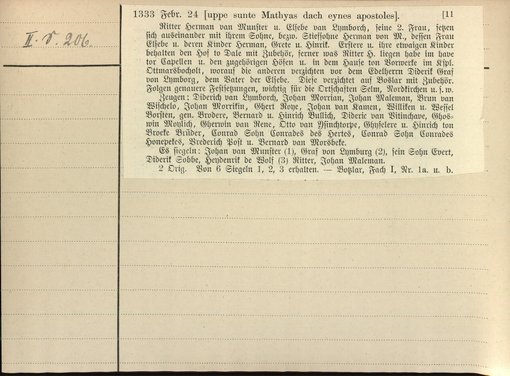 II. V. 206.
1333 Febr. 24 [uppe sunte Mathyas dach eynes apostoles]. [11
Ritter Herman van Munster u. Elsebe van Lymborch, seine 2. Frau, setzen
sich auseinander mit ihrem Sohne, bezw. Stiefsohne Herman von M., dessen Frau
Elsebe u. deren Kinder Herman, Grete u. Hinrik. Erstere u. ihre etwaigen Kinder
behalten den Hof to Dale mit Zubehör, ferner was Ritter H. liegen habe im have
tor Capellen u. den zugehörigen Höfen u. in dem Hause ton Vorwerke im Kspl.
Ottmarsbocholt, worauf die anderen verzichten vor dem Edelherrn Diderik Graf
von Lymborg, dem Vater der Elsebe. Diese verzichtet auf Boslar mit Zubehör.
Folgen genauere Festsetzungen, wichtig für die Ortschaften Selm, Nordkirchen u. s. w.
Zeugen: Diderich van Lymborch, Johan Morrian, Johan Maleman, Brun van
Wischelo, Johan Morrikin, Ghert Roye, Johan van Ramen, Williken u. Wessel
Borsten, gen. Brodere, Bernard u. Hinrich Bullich, Dideric van Vitinchave, Ghos-
win Moylich, Gherwin van Rene, Otto van Ysinchtorpe, Ghyselere u. Hinrich ton
Broke Brüder, Conrad Sohn Conrades des Hertes, Conrad Sohn Conrades
Honepekes, Brederich Post u. Bernard van Morsbeke.
Es siegeln: Johan van Munster (1), Graf von Lymburg (2), sein Sohn Evert,
Diderik Sobbe, Heydenrik de Wolf (3) Ritter, Johan Maleman.
2 Orig. Von 6 Siegeln 1, 2, 3 erhalten. — Botzlar, Fach I, Nr. 1a. u. b.